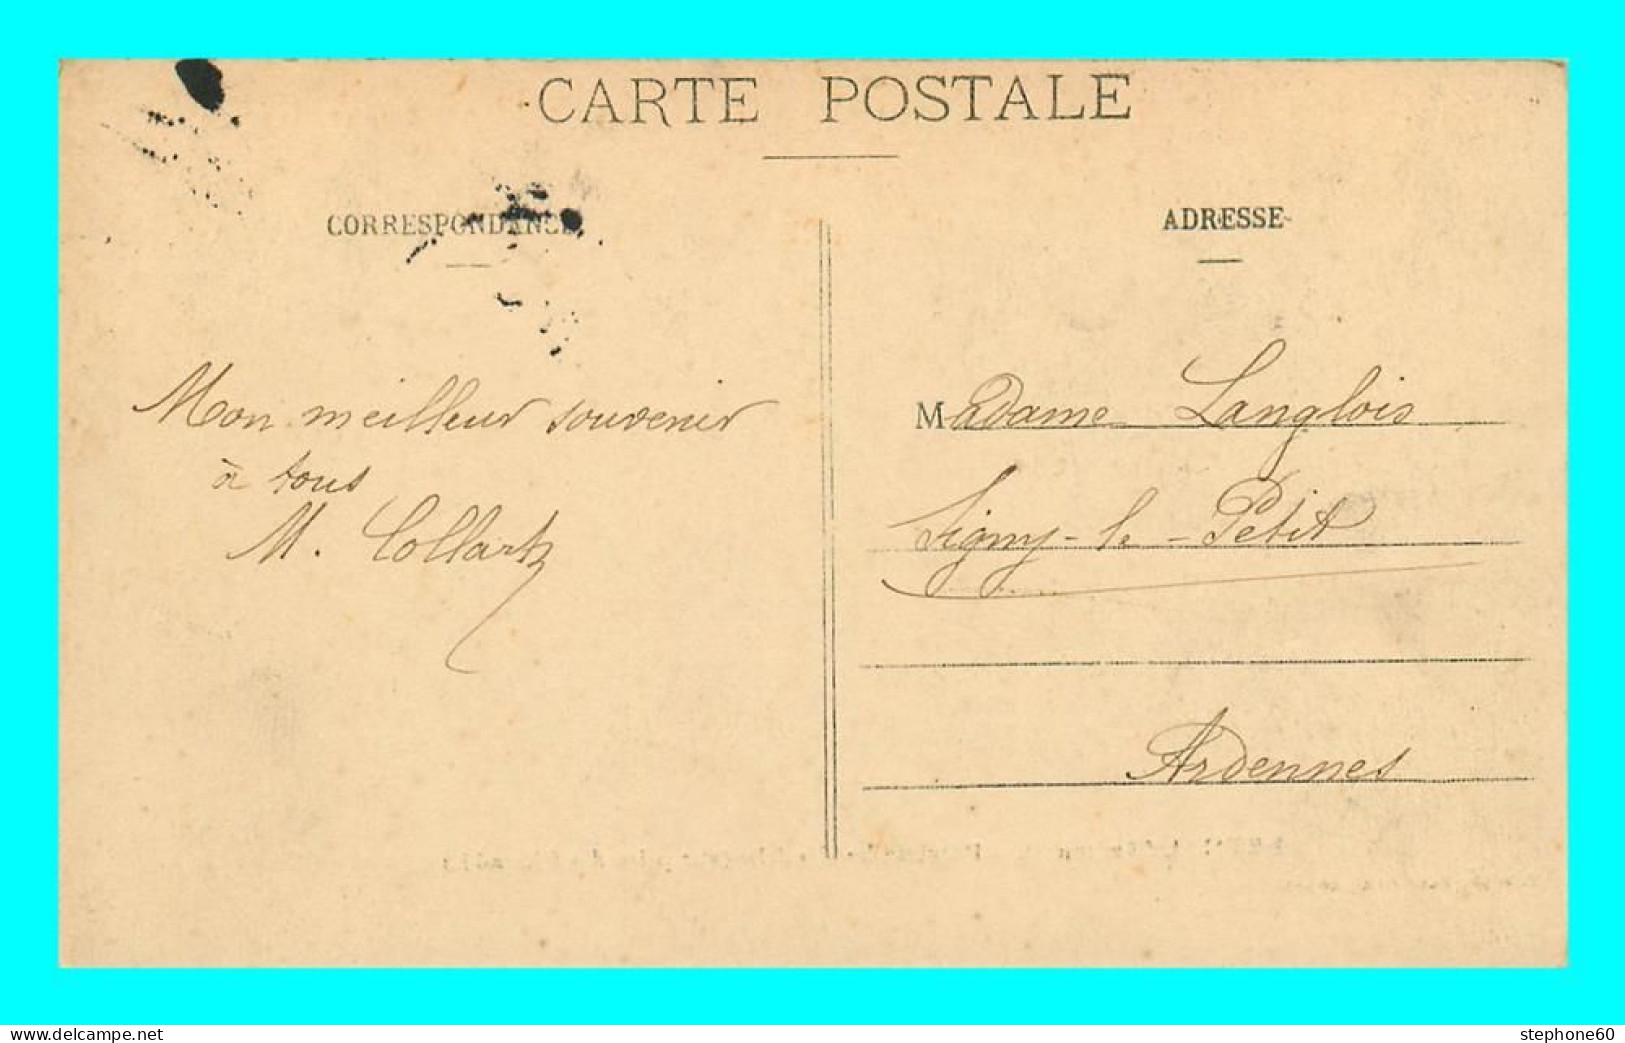 CARTE POSTALE
CORRESPONDANCE
ADRESSE
Mon meilleur souvenir
à tous
M. Collart
Madame Langlois
Signy-le-Petit
Ardennes
www.delcampe.net
stephone60